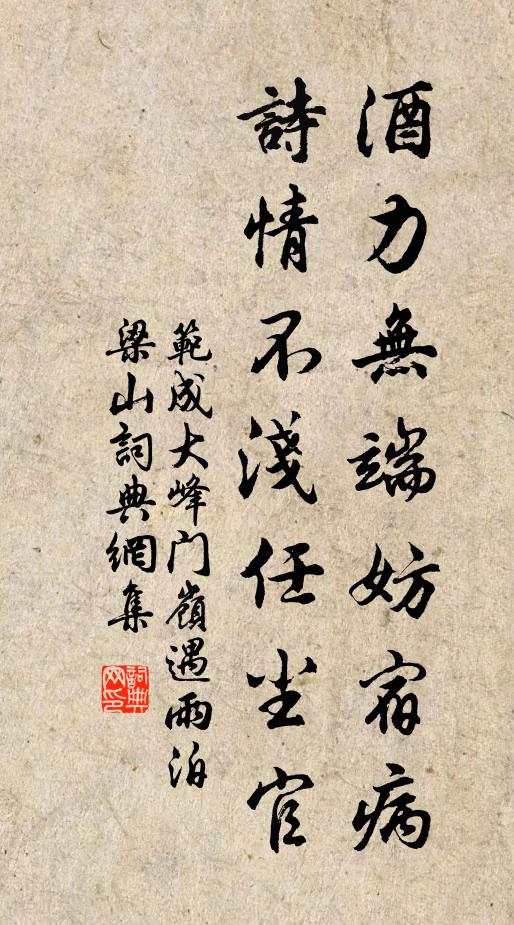 酒力無端妨宿病
詩情不淺任塵官
範成大峰门嶺遇雨泊
梁山詞典網集
詞典
网印